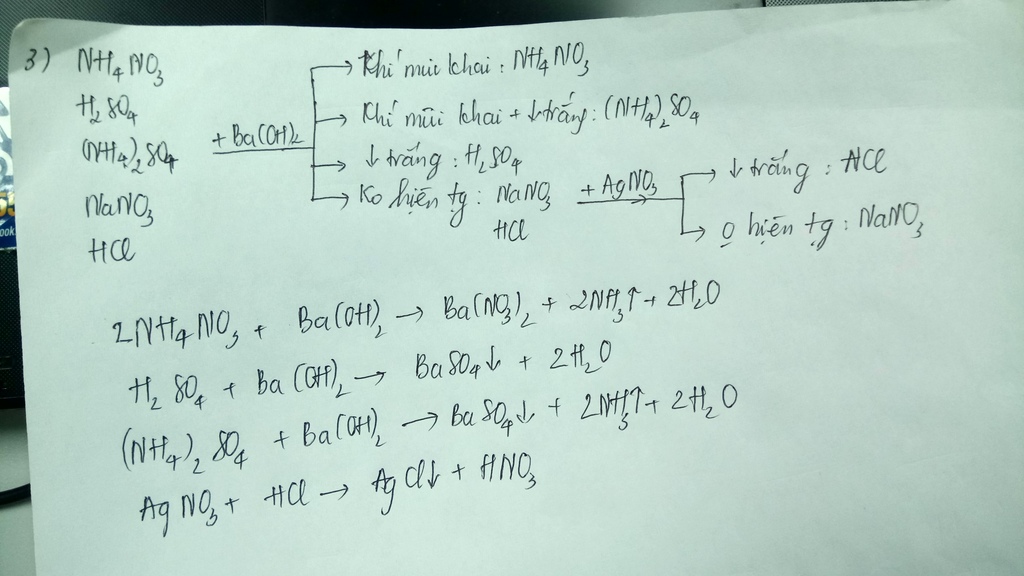 3) NH₄NO₃
H₂SO₄
(NH₄)₂SO₄
NaNO₃
HCl
+ Ba(OH)₂
→ Khí mùi khai : NH₄NO₃
→ Khí mùi khai + ↓ trắng : (NH₄)₂SO₄
→ ↓ trắng : H₂SO₄
→ Ko hiện tg : NaNO₃
HCl
+ AgNO₃
→ ↓ trắng : HCl
→ 0 hiện tg : NaNO₃
2NH₄NO₃ + Ba(OH)₂ → Ba(NO₃)₂ + 2NH₃↑ + 2H₂O
H₂SO₄ + Ba(OH)₂ → BaSO₄↓ + 2H₂O
(NH₄)₂SO₄ + Ba(OH)₂ → BaSO₄↓ + 2NH₃↑ + 2H₂O
AgNO₃ + HCl → AgCl↓ + HNO₃